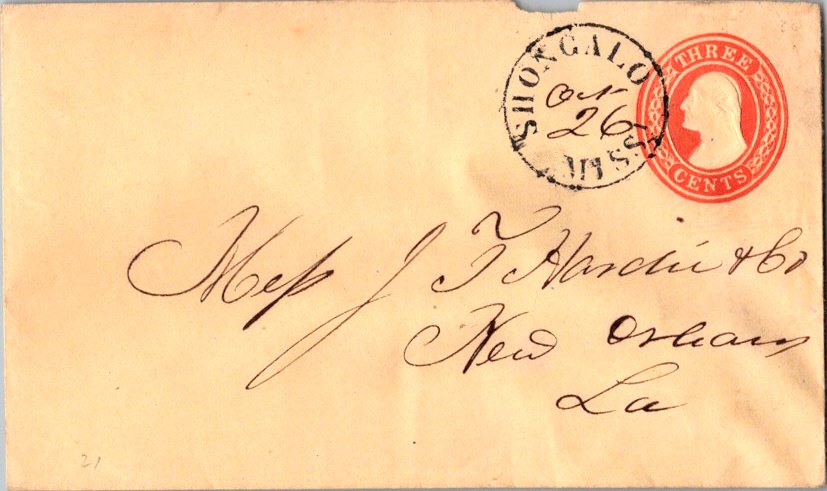 SHONGALO
Oct
26
MISS.
THREE
CENTS
Mess J T Hardie & Co
New Orleans
La
21